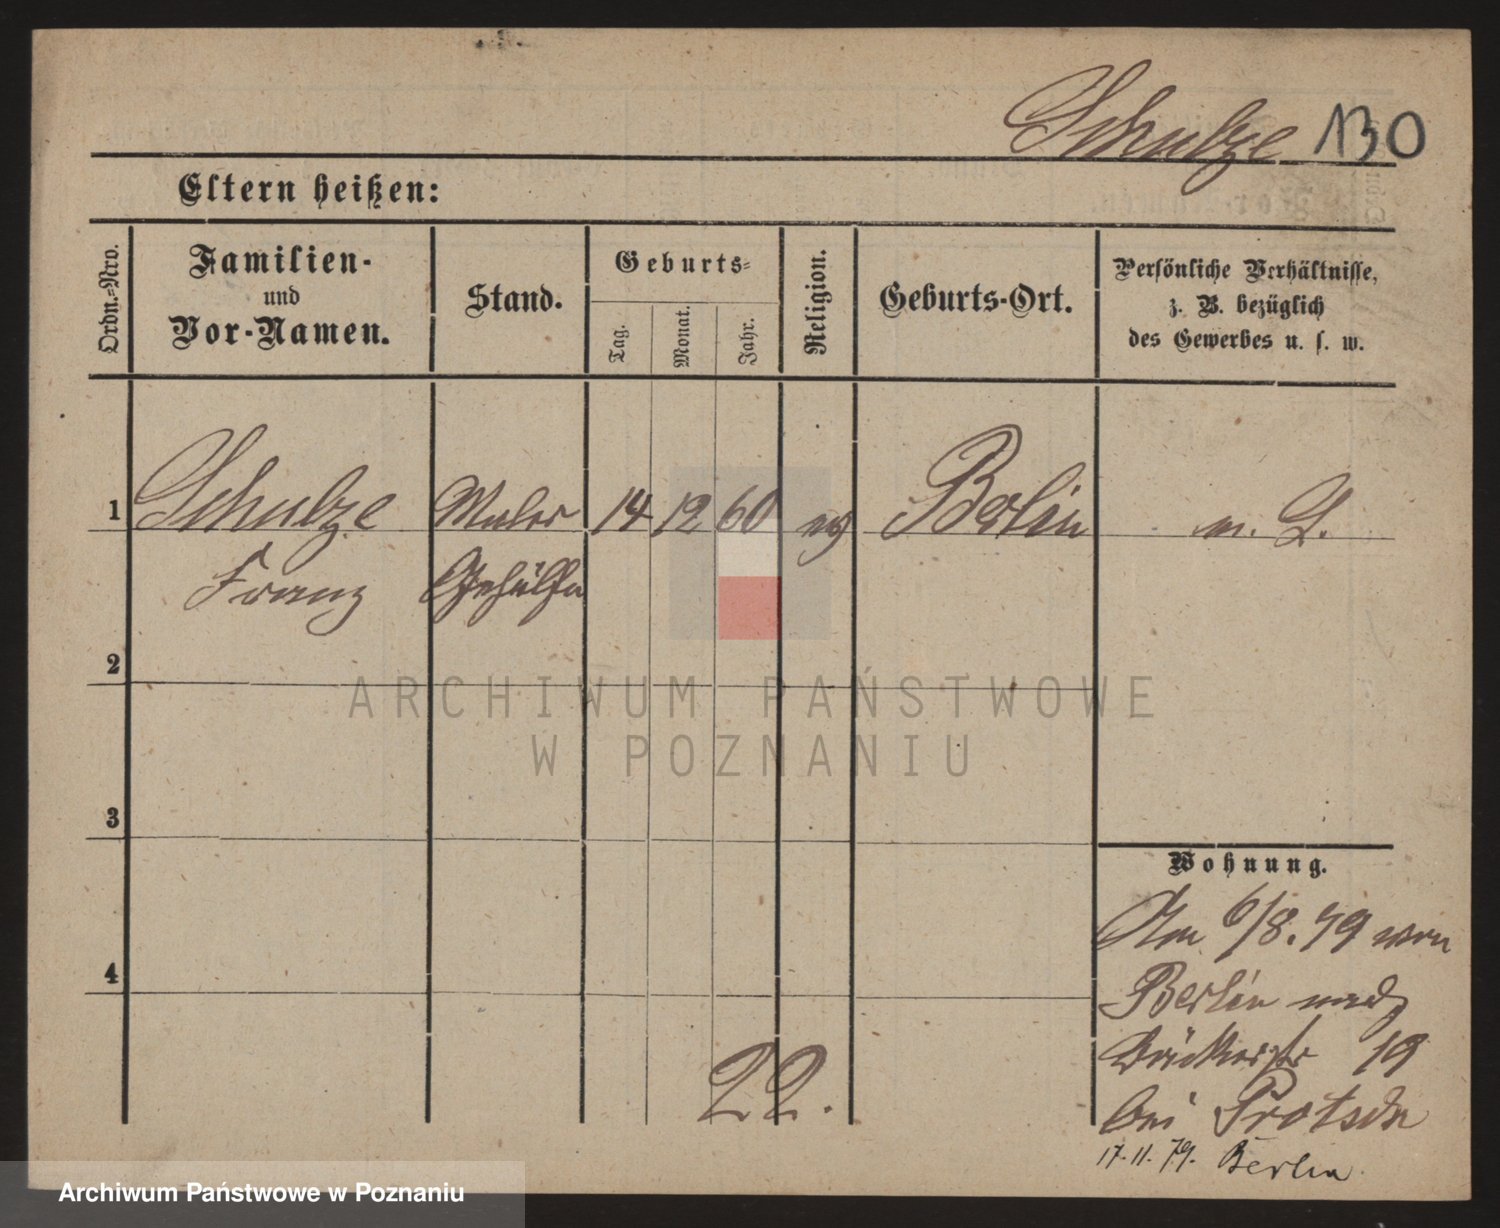 Schulze 130
Eltern heißen:
Ordn.=Nro.
Familien-
und
Vor-Namen.
Stand.
Geburts=
Tag.
Monat.
Jahr.
Religion.
Geburts-Ort.
Persönliche Verhältnisse,
z. B. bezüglich
des Gewerbes u. s. w.
1 Schulze Maler 14 12 60 ev Berlin m. L.
Franz Gehülfe
2
ARCHIWUM PAŃSTWOWE
W POZNANIU
3
Wohnung.
Am 6/8. 79 von
Berlin nach
4
Bäckerstr 19
22.
bei
17.11.79. Berlin
Archiwum Państwowe w Poznaniu